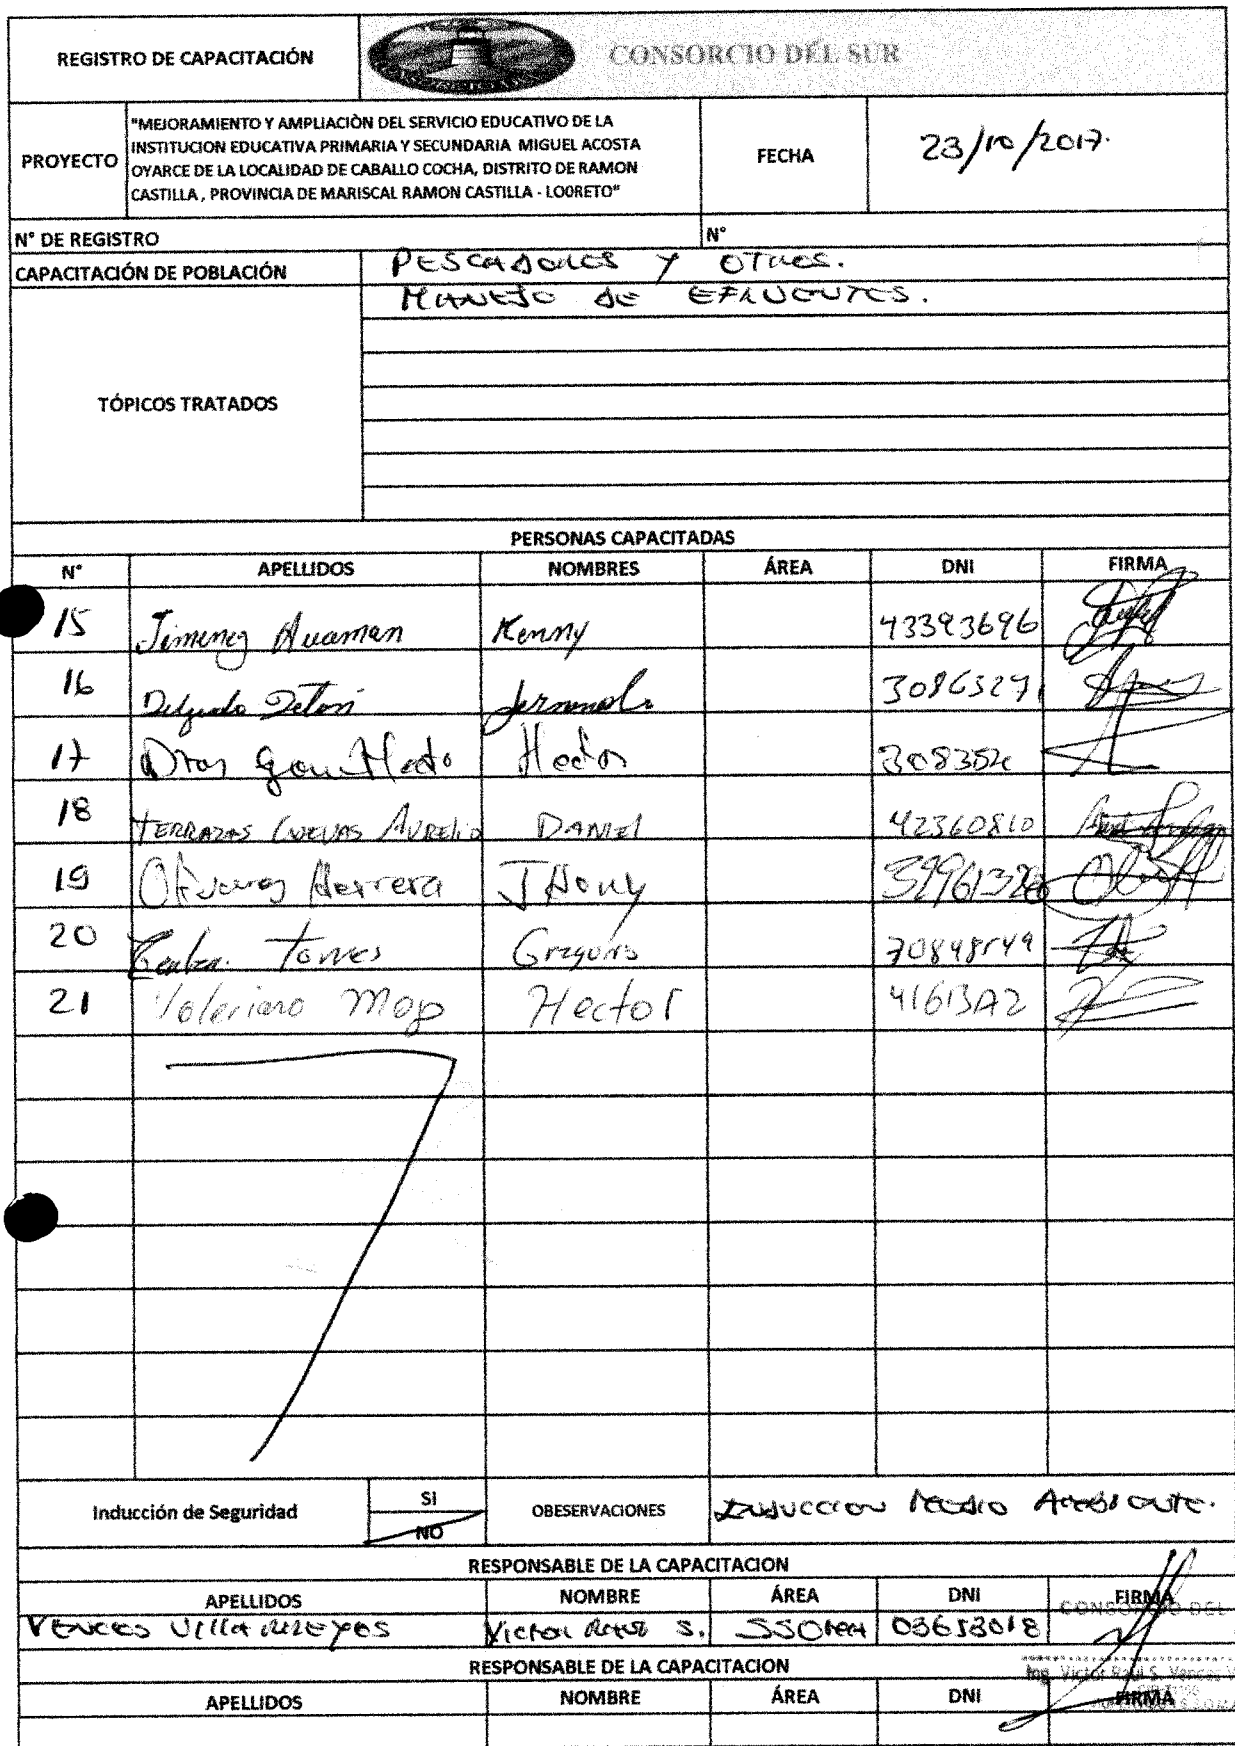 REGISTRO DE CAPACITACIÓN
CONSORCIO DEL SUR
PROYECTO
"MEJORAMIENTO Y AMPLIACIÒN DEL SERVICIO EDUCATIVO DE LA
INSTITUCION EDUCATIVA PRIMARIA Y SECUNDARIA MIGUEL ACOSTA
OYARCE DE LA LOCALIDAD DE CABALLO COCHA, DISTRITO DE RAMON
CASTILLA , PROVINCIA DE MARISCAL RAMON CASTILLA - LOORETO"
FECHA
23/10/2017.
N° DE REGISTRO
N°
CAPACITACIÓN DE POBLACIÓN
PESCADORES Y OTROS.
TÓPICOS TRATADOS
MANEJO DE EFLUENTES.
PERSONAS CAPACITADAS
N° APELLIDOS NOMBRES ÁREA DNI FIRMA
15 Jimenez Huaman Kenny 43393696
16 Delgado 30863271
17 Hector
18 TERRAZAS CUEVAS AURELIO DANIEL 42360810
19 Herrera JHony
20 Torres
21 Valeriano Hector
Inducción de Seguridad
SI
NO
OBESERVACIONES
INDUCCION MEDIO AMBIENTE.
RESPONSABLE DE LA CAPACITACION
APELLIDOS NOMBRE ÁREA DNI FIRMA
VENCES VILLA REYES Victor Raul S. 03653018
CONSORCIO DEL
RESPONSABLE DE LA CAPACITACION
Ing. Victor Raul S. Vences V
APELLIDOS NOMBRE ÁREA DNI FIRMA